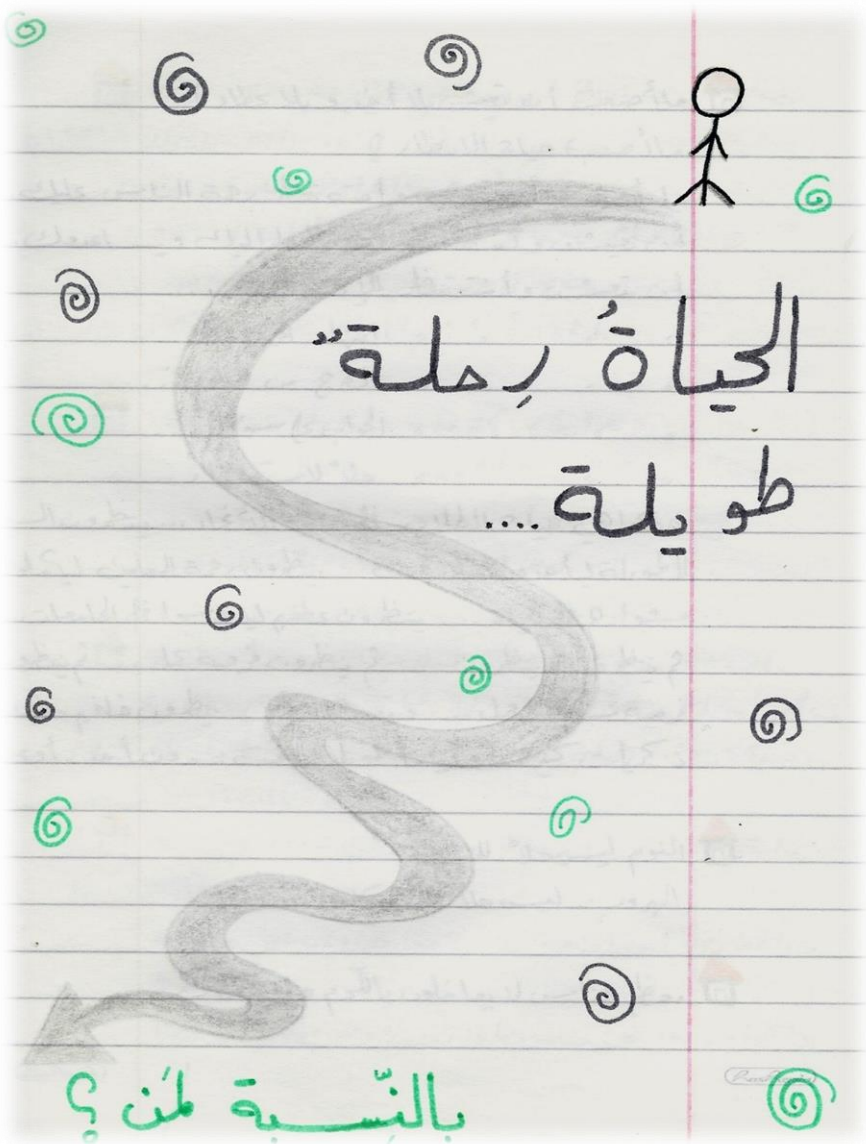 الحياةُ رِحلةٌ
طويلة ....
بالنِّسبة لمَن ؟